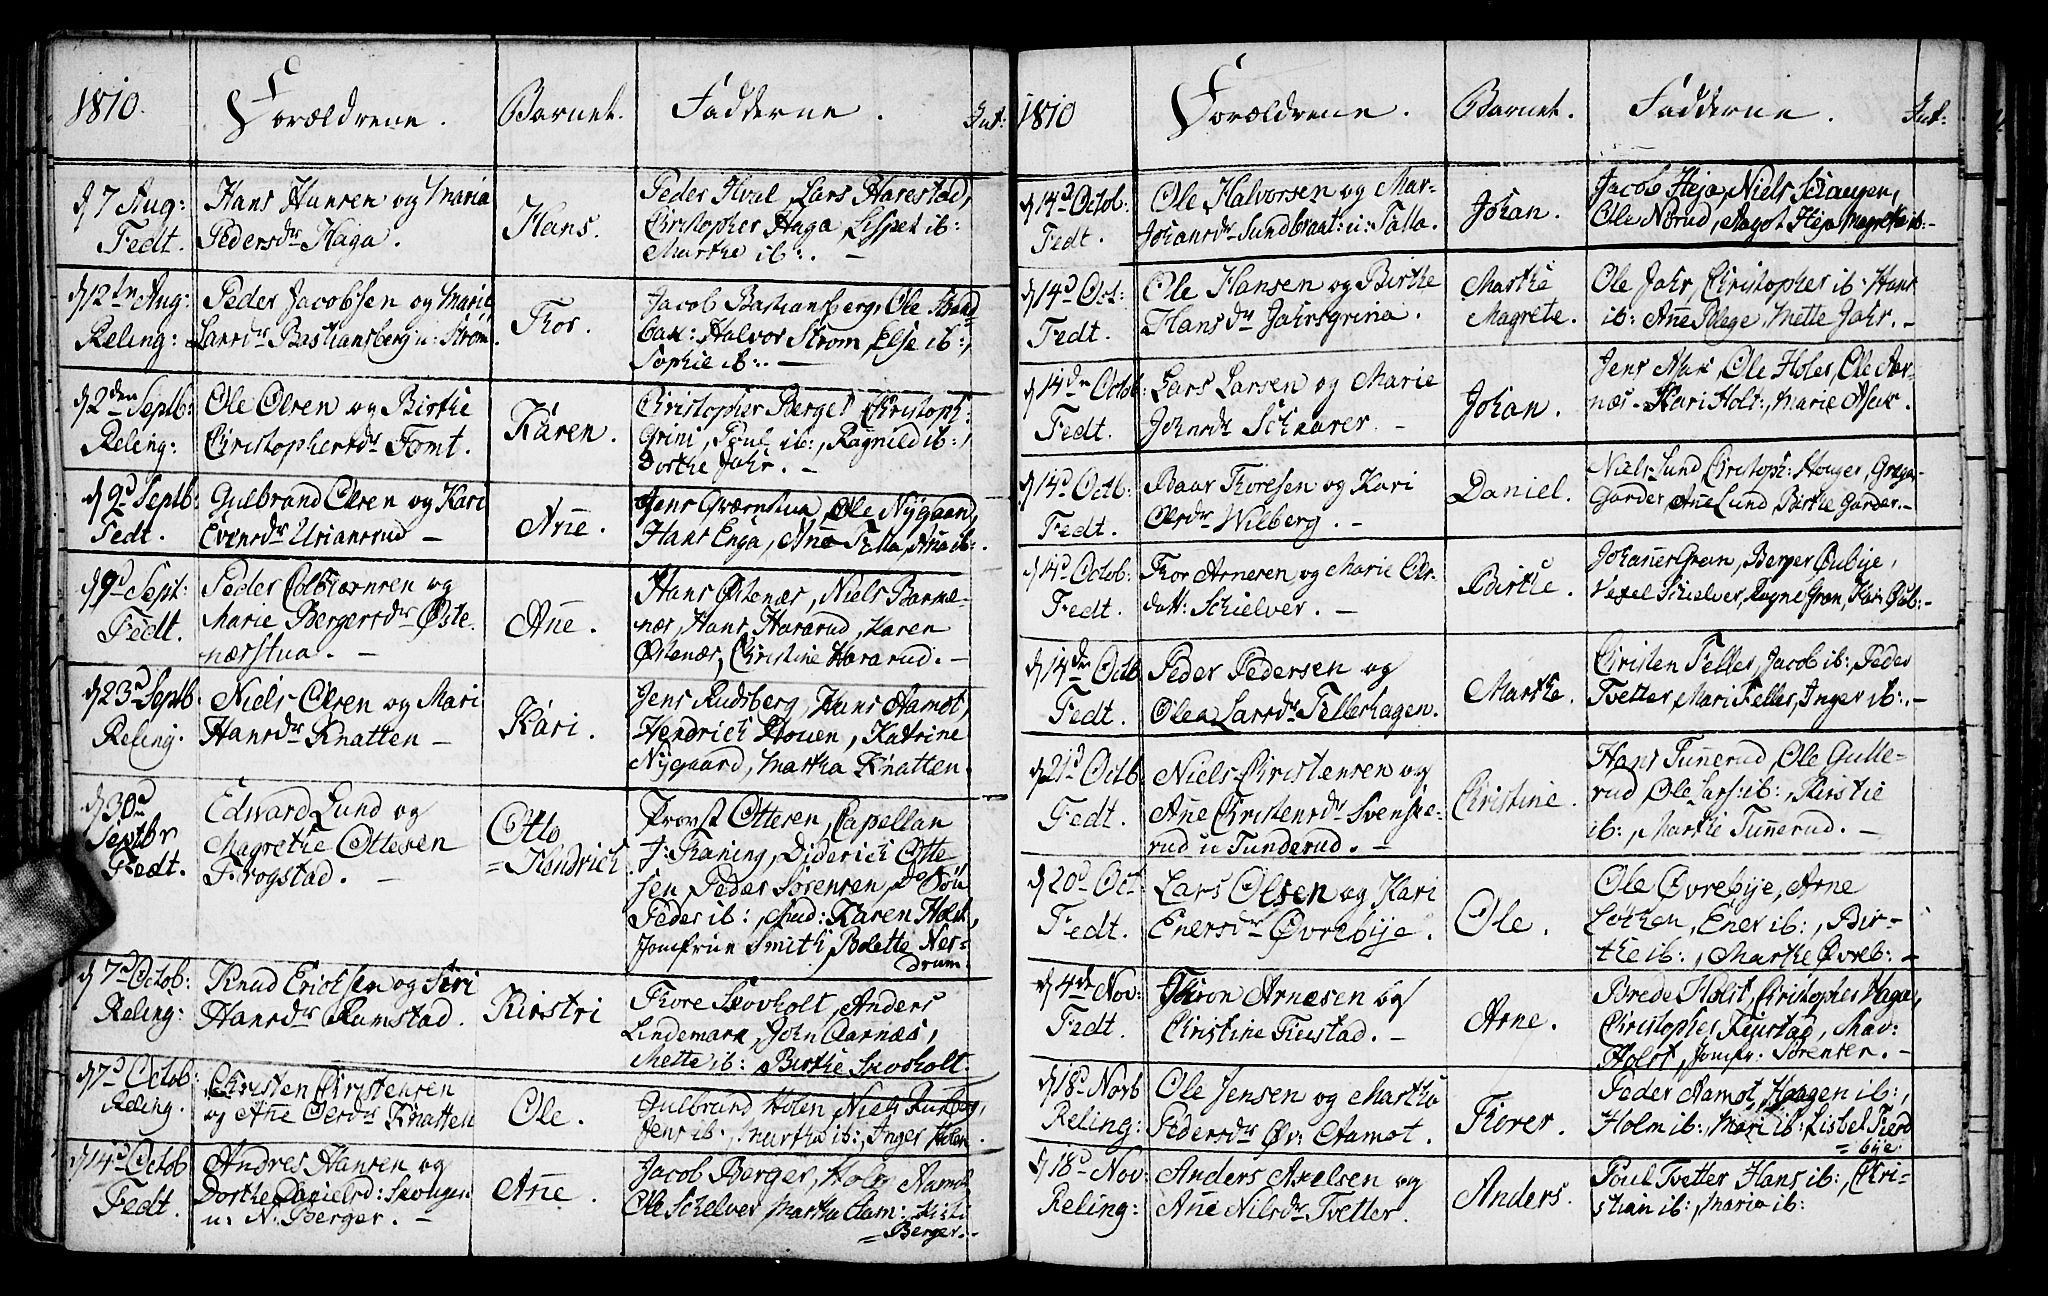 1810.
Forældrene.
Barnet.
Fadderne.
Int:
d 7 Aug:
Fedt.
Hans Hansen og Maria
Pedersdr Haga.
Hans.
Peder Hval, Lars Harestad,
Christopher Haga, Lispet ib:
Marthe ib:. —
d 12te Aug:
Reling:
Peder Jacobsen og Marie
Larsdr Bastiansberg u: Strøm.
Tor.
Jacob Bastiansberg, Ole
Halvor Strøm, Else ib:,
Sophie ib:. —
d 2den Septb:
Reling:
Ole Olsen og Birthe
Christophersdr Tomt.
Karen.
Christopher Berger Christoph:
Grini, Poul ib:, Ragnild ib:,
Dorthe Jahr. —
d 9d Septb:
Fedt.
Gulbrand Olsen og Kari
Evensdr Uriansrud —
Añe.
Jens Ole Nygaard,
Hans Enga, Añe Tælla, Aña ib:.
d 9d Sept:
Fedt.
Peder Colbiørnsen og
Marie Bergersdr Øste-
nærstua. —
Añe.
Hans Østenær, Niels Barme-
nær, Hans Hararud, Karen
Østenær, Christine Hararud. —
d 23d Septb:
Reling:
Niels Olsen og Mari
Hansdr Knatten —
Kari.
Jens Rudsberg, Hans Aamot,
Hendrich Houen, Katrine
Nygaard, Martha Knatten.
d 30d
Septbr
Fedt.
Edward Lund og
Magrethe Ottesen
Frogstad. —
Otto
=Hendrich
Provst Ottesen, Capellan
J: Faning, Diderich Otte
sen Peder Sørensen, Do Søn
Peder ib:, Mad: Karen Holst,
Jomfrue Smith, Bolette Ner-
drum.
d 7d Octob:
Reling:
Knud Erichsen og Siri
Hansdr Ramstad.
Kirstri
Thore Skovholt, Anders
Lindemark, John Aarnæs,
Mette ib: Birthe Skovholt.
d 7d Octob:
Reling.
Christen Christensen
og Añe Olersdr Knatten
Ole.
Gulbrand Holen Niels
Jens ib:, Martha ib:, Inger Holen.
d 14d Octob
Fedt.
Andres Hansen og
Dorthe Danielsd: Skougen
u: N: Berger. —
Añe.
Jacob Berger, Holm Aamot
Ole Schelver, Martha Aam:
= Berger. -
1810
Forældrene.
Barnet.
Fadderne.
Int:
d 14d Octob:
Fedt.
Ole Halvorsen og Mar-
Johansdr Sundbraat: u: Tælla.
Johan.
Jacob Heja, Niels Scaugen,
Ole Norud, Aagot Heja Magrethe ib: -
d 14d Oct:
Fedt.
Ole Hansen og Birthe
Hansdr Jahrsgrina.
Marthe
Magrete.
Ole Jahr, Christopher ib: Hans
ib: Añe Plege, Mette Jahr. -
d 14de Octob:
Fedt.
Lars Larsen og Marie
Johnsdr Schaarer. —
Johan.
Jens Mork, Ole Holer, Ole Aar-
næs - Kari Hols:, Marie Asak.
d 14d Octb:
Fedt.
Baar Thoresen og Kari
Olersdr Wilberg. —
Daniel.
Niels Lund Christoph: Houger, Grega
Garder, Añe Lund, Birthe Garder. -
d 14d Octob:
Fedt.
Thor Arnesen og Marie Ols-
datt: Schielver. —
Birthe.
Johañes Gran, Berger Øubye,
Hexel Schielver, Ragne Gran, Kari Øub: -
d 14de Octb.
Fedt.
Peder Pedersen og
Olea Larsdr Tellershagen.
Marthe.
Christen Teller, Jacob ib:, Peder
Tvetter, Mari Teller, Inger ib:. -
d 21d Octb
Fedt.
Niels Christensen og
Añe Christensdr Svenske-
rud u Tunderud. —
Christine.
Hans Tuñerud, Ole Gulle-
rud, Ole Lars: ib:, Kirstie
ib:, Marthe Tuñerud. —
d 20d Oct:
Fedt.
Lars Olsen og Kari
Enersdr Øvrebye.
Ole.
Ole Øvrebye, Arne
Løkken, Ener ib:, Bir-
the ib:, Marthe Øvreb: -
d 4de Nov:
Fedt.
Arnesen og
Christine Fieistad. —
Arne.
Brede Holst, Christopher Haga,
Christopher Feiestad, Mar:
Holst, Jomfr: Sørensen. —
d 18d Novb
Reling:
Ole Jensen og Martha
Pedersdr Øv: Aamot.
Thorer.
Peder Aamot, Haagen ib:,
Holm ib:, Mari ib: Lisbet Fierd
= bye.
d 18d Nov:
Reling:
Anders Axelsen og
Añe Nilsdr Tvetter.
Anders.
Poul Tvetter Hans ib:, Chri-
stian ib:, Maria ib: